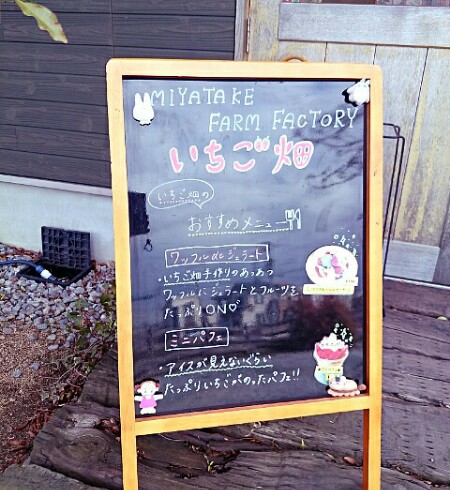 MIYATAKE
FARM FACTORY
いちご畑
いちご畑の
おすすめメニュー
ワッフル de ジェラート
・いちご畑手作りのあつあつ
ワッフルにジェラートとフルーツを
たっぷりON♡
ミニパフェ
・アイスが見えないぐらい
たっぷりいちごがのったパフェ!!